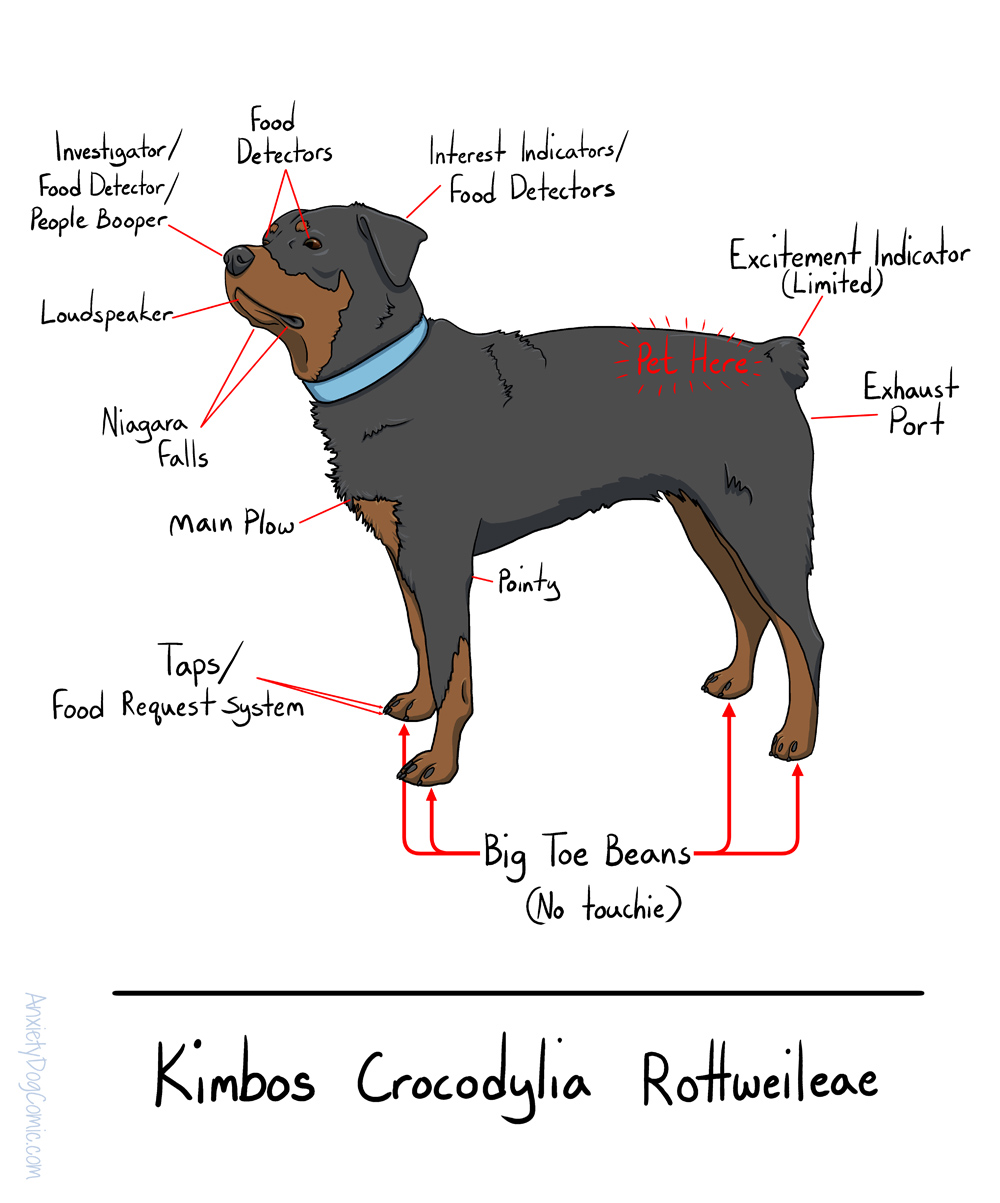 Food
Detectors
Investigator/
Food Detector/
People Booper
Interest Indicators/
Food Detectors
Excitement Indicator
(Limited)
Loudspeaker
Pet Here
Exhaust
Port
Niagara
Falls
Main Plow
Pointy
Taps/
Food Request System
Big Toe Beans
(No touchie)
Kimbos Crocodylia Rottweileae
AnxietyDogComic.com